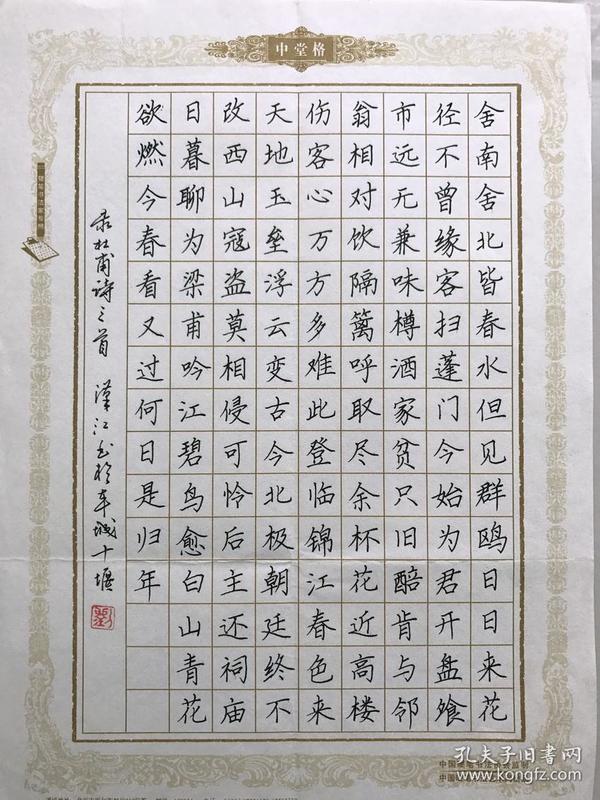 中堂格
舍南舍北皆春水但见群鸥日日来花
径不曾缘客扫蓬门今始为君开盘飧
市远无兼味樽酒家贫只旧醅肯与邻
翁相对饮隔篱呼取尽余杯花近高楼
伤客心万方多难此登临锦江春色来
天地玉垒浮云变古今北极朝廷终不
改西山寇盗莫相侵可怜后主还祠庙
日暮聊为梁甫吟江碧鸟愈白山青花
欲燃今春看又过何日是归年
录杜甫诗三首 漢江书於车城十堰
孔夫子旧书网
www.kongfz.com